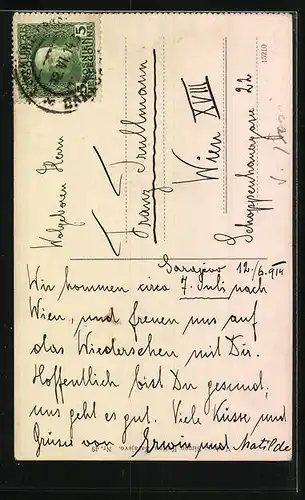 Sarajevo 12./6. 914
Wir kommen circa 7. Juli nach
Wien, und freuen uns auf
das Wiedersehen mit Dir.
Hoffentlich bist Du gesund;
uns geht es gut. Viele Küsse und
Grüsse von Erwin und Matilde
Wolgeboren Herrn
Franz Trullmann
Wien XVIII
Schoppenhauergasse 22
5
15210